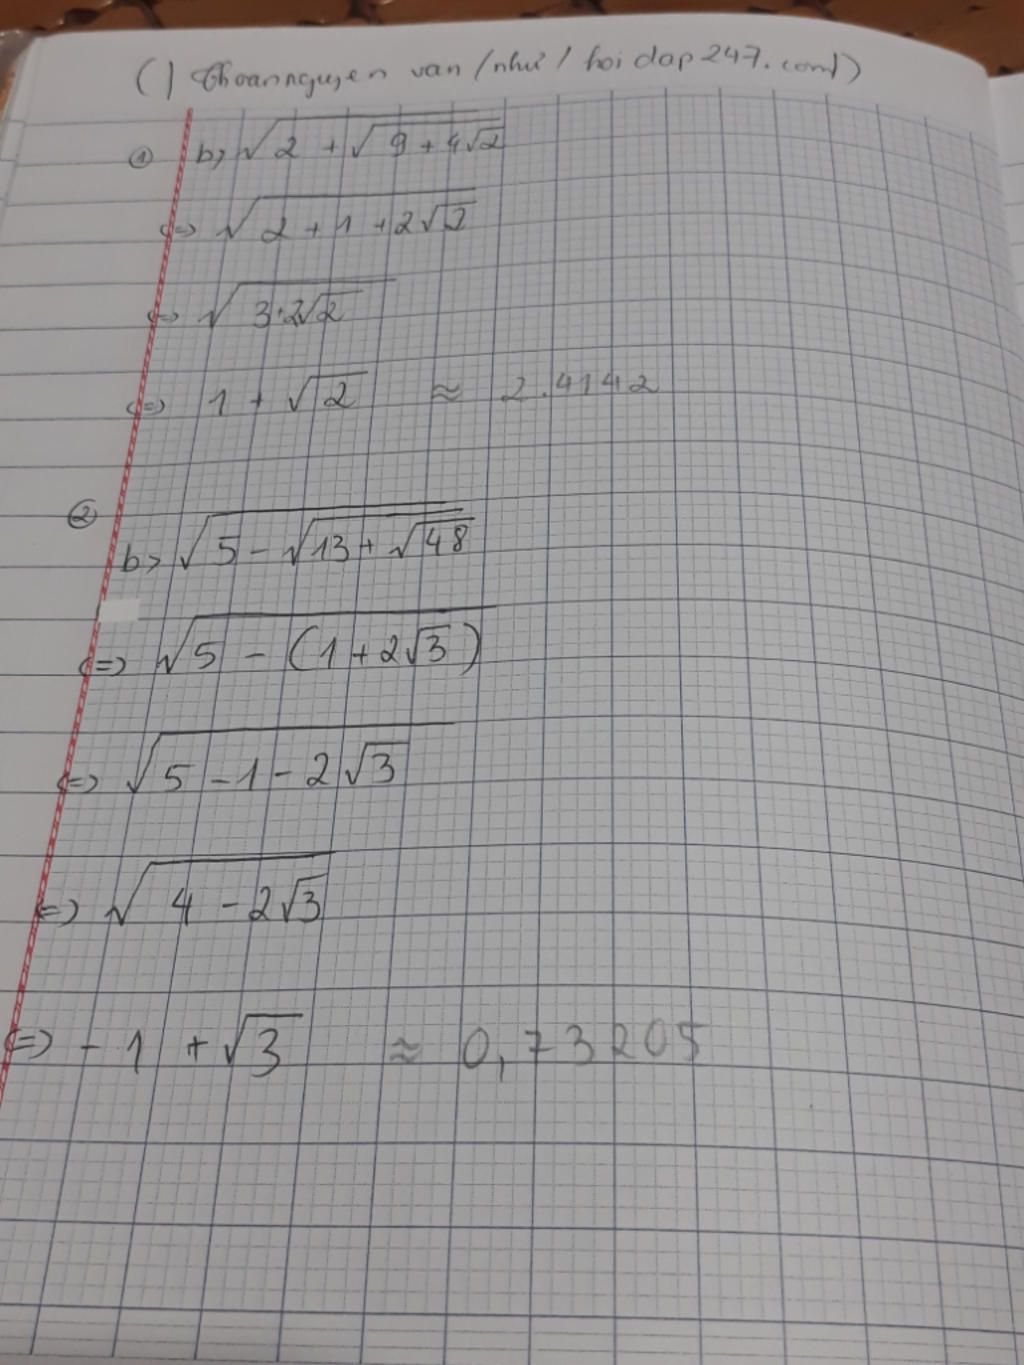 (| Thoannguyen van /như/ hoidap247.com/)
① b, √(2 + √(9 + 4√2))
<=> √(2 + 1 + 2√2)
<=> √(3+2√2)
<=> 1 + √2 ≈ 2.4142
②
b> √(5 - √(13 + √48))
<=> √(5 - (1 + 2√3))
<=> √(5 - 1 - 2√3)
<=> √(4 - 2√3)
<=> - 1 + √3 ≈ 0,73205